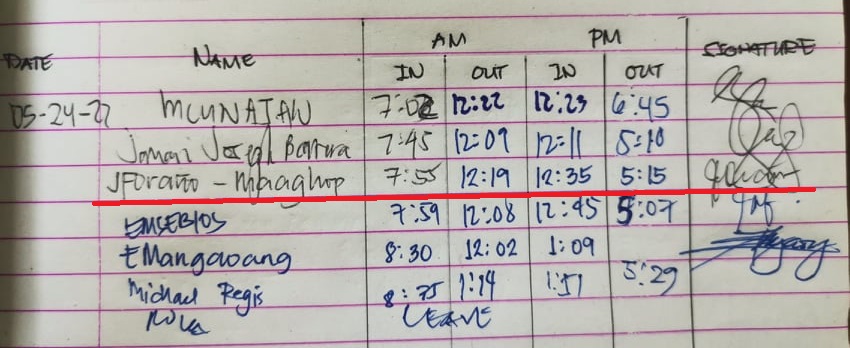 AM PM
DATE NAME IN OUT IN OUT SIGNATURE
05-24-22 MCUNATAN 7:02 12:22 12:23 6:45
Jomari Joseph 7:45 12:09 12:11 5:10
JForatto - Maaghop 7:55 12:19 12:35 5:15
EMSEBIOS 7:59 12:08 12:45 5:07
EMangawang 8:30 12:02 1:09
Michael Regis 8:75 1:14 1:51 5:29
LEAVE